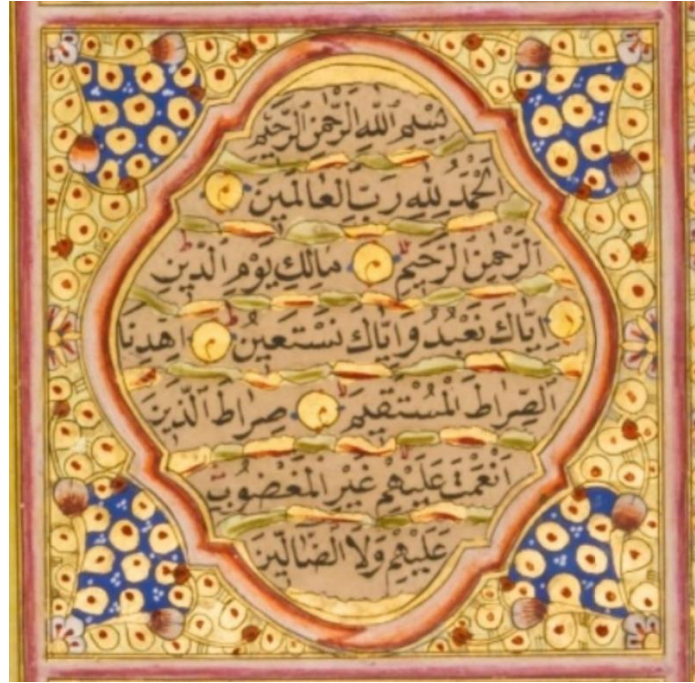 بِسْمِ اللهِ الرَّحْمٰنِ الرَّحِيْمِ
اَلْحَمْدُ لِلّٰهِ رَبِّ الْعَالَمِيْنَ
اَلرَّحْمٰنِ الرَّحِيْمِ مَالِكِ يَوْمِ الدِّيْنِ
اِيَّاكَ نَعْبُدُ وَاِيَّاكَ نَسْتَعِيْنُ اِهْدِنَا
الصِّرَاطَ الْمُسْتَقِيْمَ صِرَاطَ الَّذِيْنَ
اَنْعَمْتَ عَلَيْهِمْ غَيْرِ الْمَغْضُوْبِ
عَلَيْهِمْ وَلَا الضَّالِّيْنَ